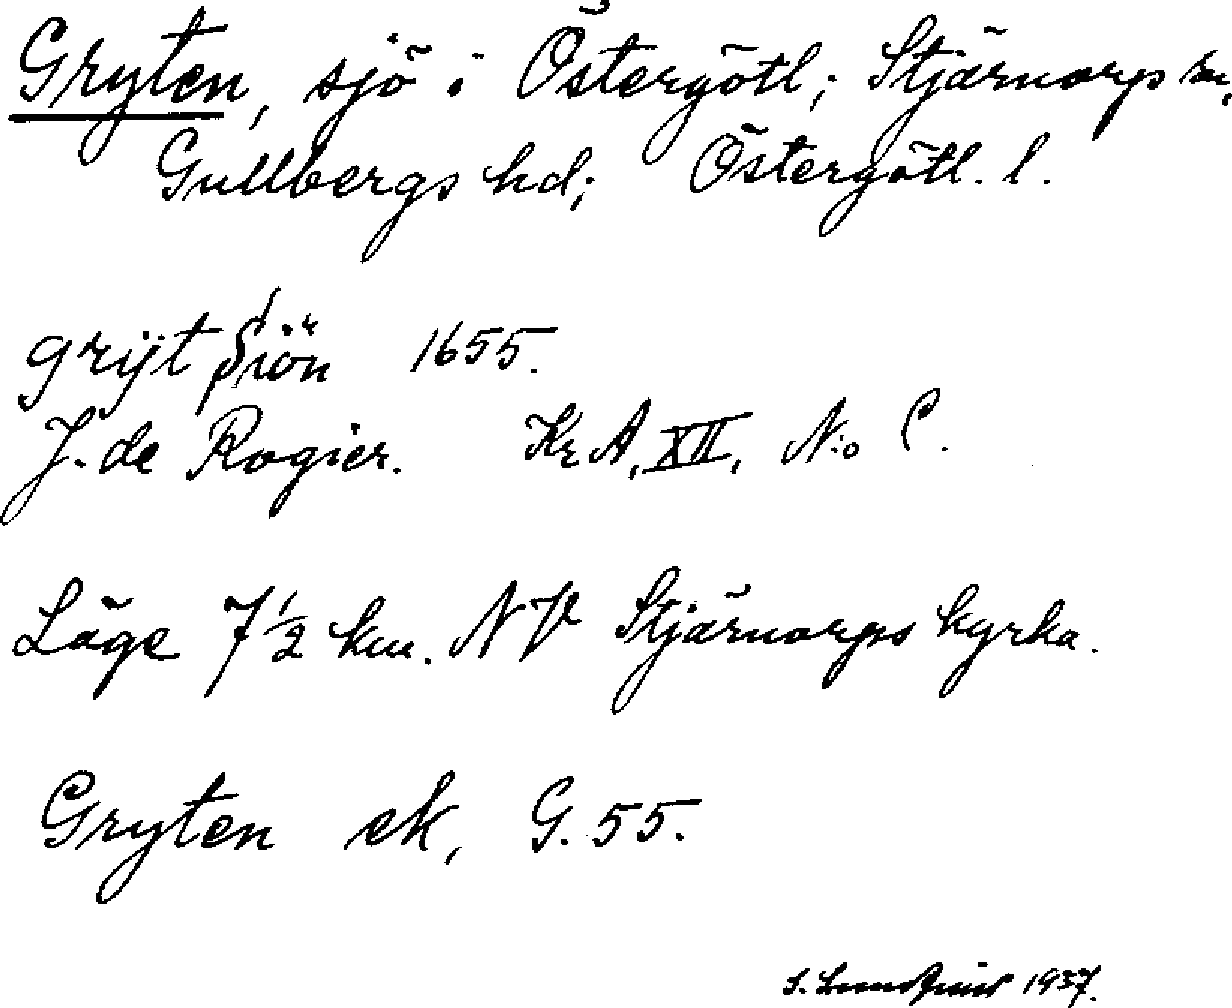 Gryten, sjö i Östergötl; Stjärnorps sn,
Gullbergs hd; Östergötl. l.
grijt Siön 1655.
J. de Rogier. Kr A, XII, N:o
Läge 7 1/2 km. NV Stjärnorps kyrka.
Gryten ek, G. 55.
1937.